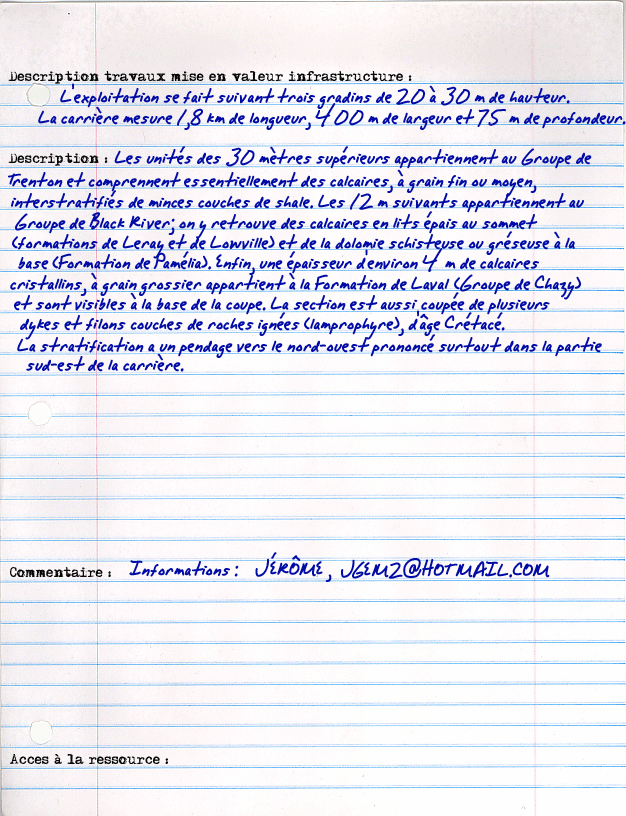 Description travaux mise en valeur infrastructure :
L'exploitation se fait suivant trois gradins de 20 à 30 m de hauteur.
La carrière mesure 1,8 km de longueur, 400 m de largeur et 75 m de profondeur.
Description : Les unités des 30 mètres supérieurs appartiennent au Groupe de
Trenton et comprennent essentiellement des calcaires, à grain fin ou moyen,
interstratifiés de minces couches de shale. Les 12 m suivants appartiennent au
Groupe de Black River; on y retrouve des calcaires en lits épais au sommet
(formations de Leray et de Lowville) et de la dolomie schisteuse ou gréseuse à la
base (Formation de Pamélia). Enfin, une épaisseur d'environ 4 m de calcaires
cristallins, à grain grossier appartient à la Formation de Laval (Groupe de Chazy)
et sont visibles à la base de la coupe. La section est aussi coupée de plusieurs
dykes et filons couches de roches ignées (lamprophyre), d'âge Crétacé.
La stratification a un pendage vers le nord-ouest prononcé surtout dans la partie
sud-est de la carrière.
Commentaire : Informations : JÉRÔME, JGEMZ@HOTMAIL.COM
Acces à la ressource :